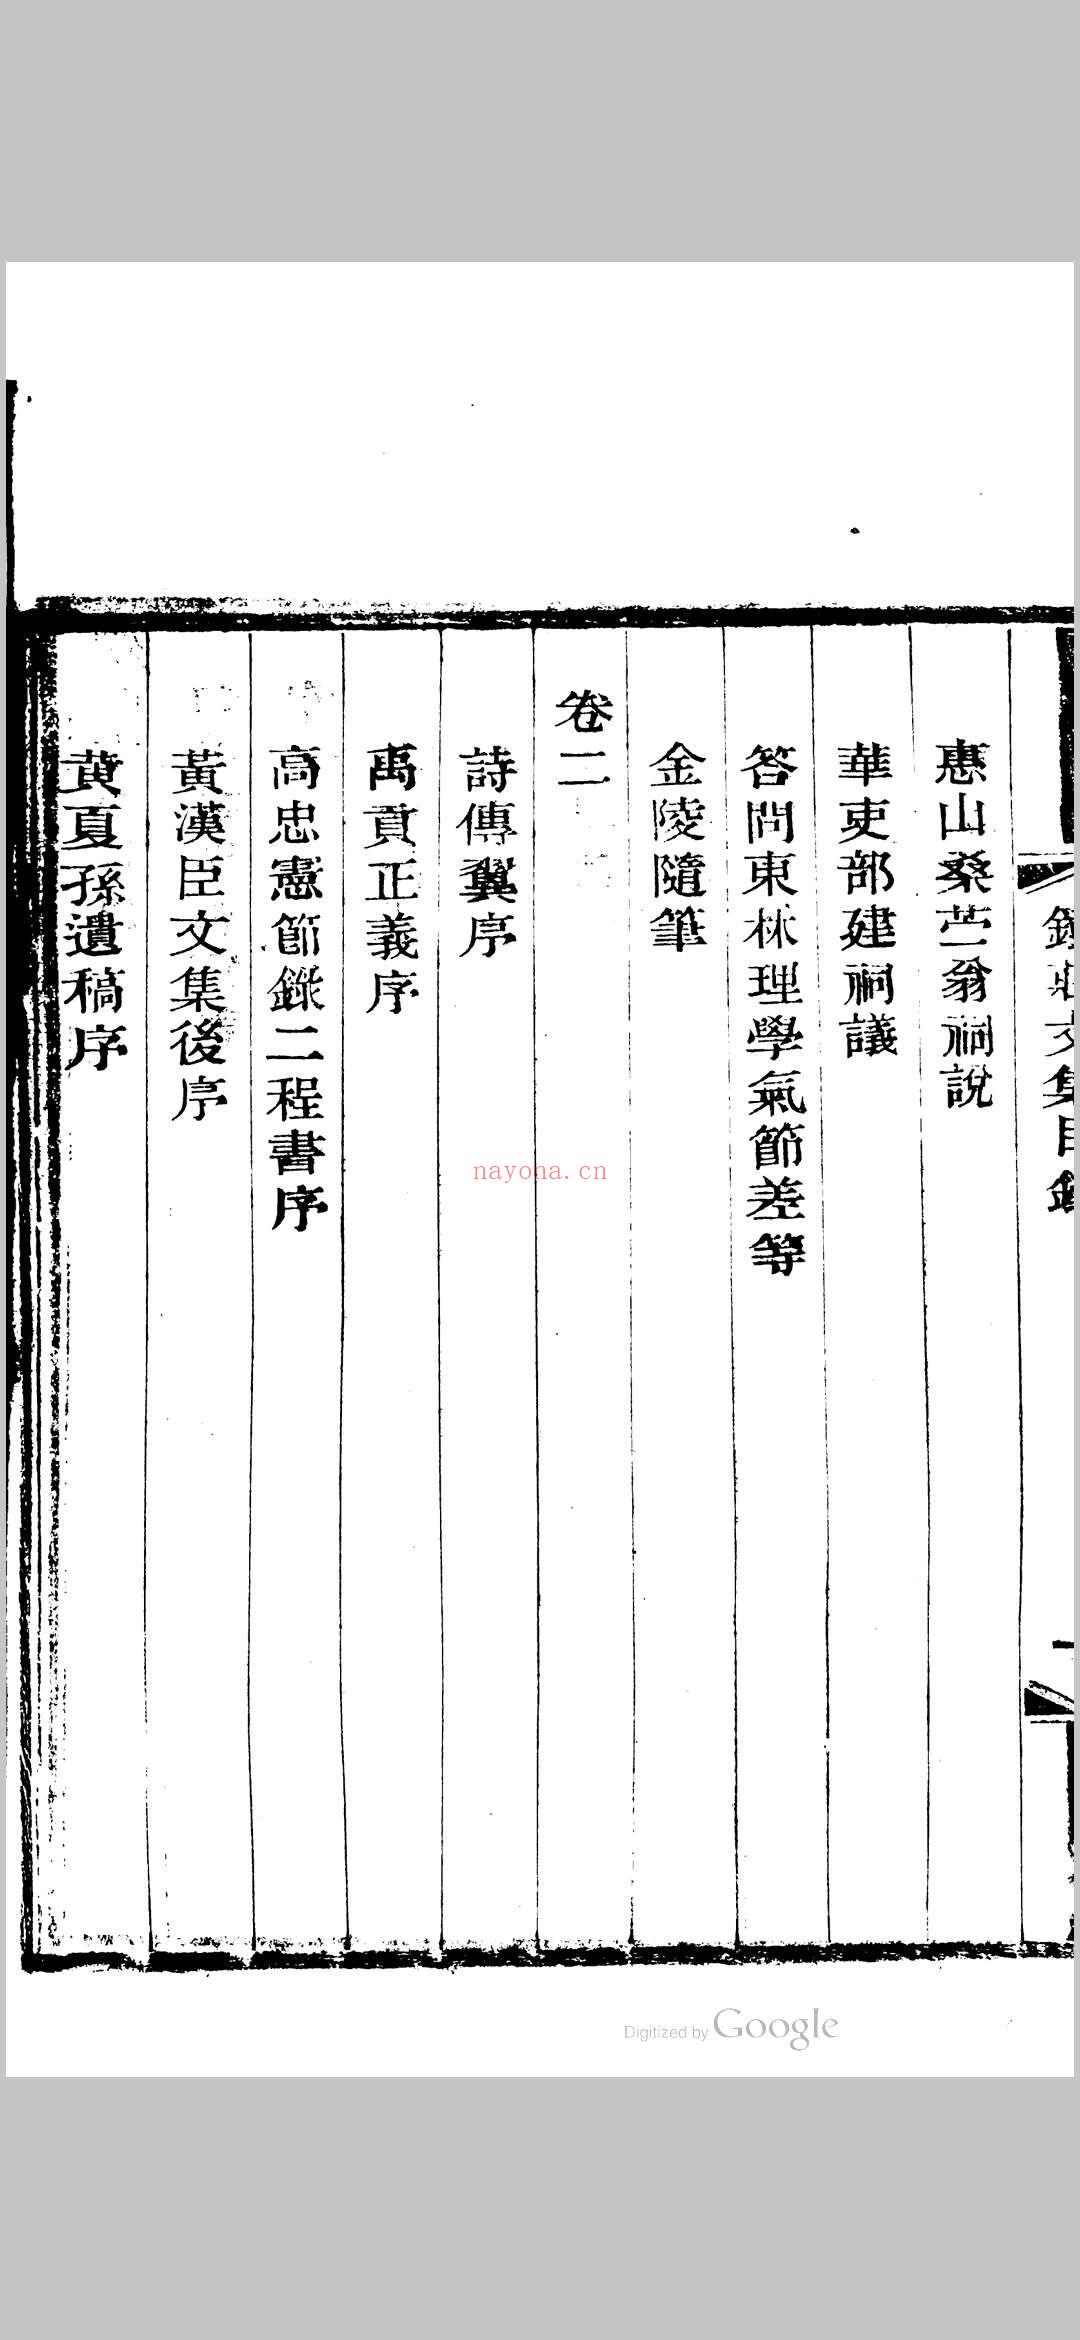 莊文集目錄
惠山桑苎翁祠說
華吏部建祠議
答問東林理學氣節差等
金陵隨筆
卷二
詩傳翼序
禹貢正義序
高忠憲節錄二程書序
黃漢臣文集後序
黄夏孫遺稿序
nayona.cn
Digitized by Google